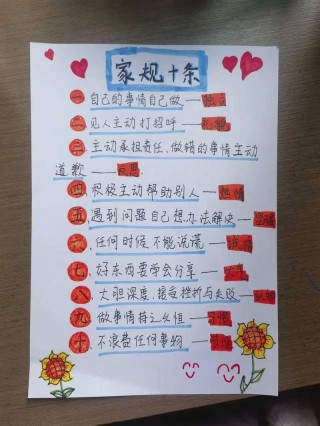 家规十条
一、自己的事情自己做——独立
二、见人主动打招呼——礼貌
三、主动承担责任、做错的事情主动
道歉——反思
四、积极主动帮助别人——热情
五、遇到问题自己想办法解决——
六、任何时候不能说谎——诚信
七、好东西要学会分享——
八、大胆深度、接受挫折与失败——
九、做事情持之以恒——习惯
十、不浪费任何事物——